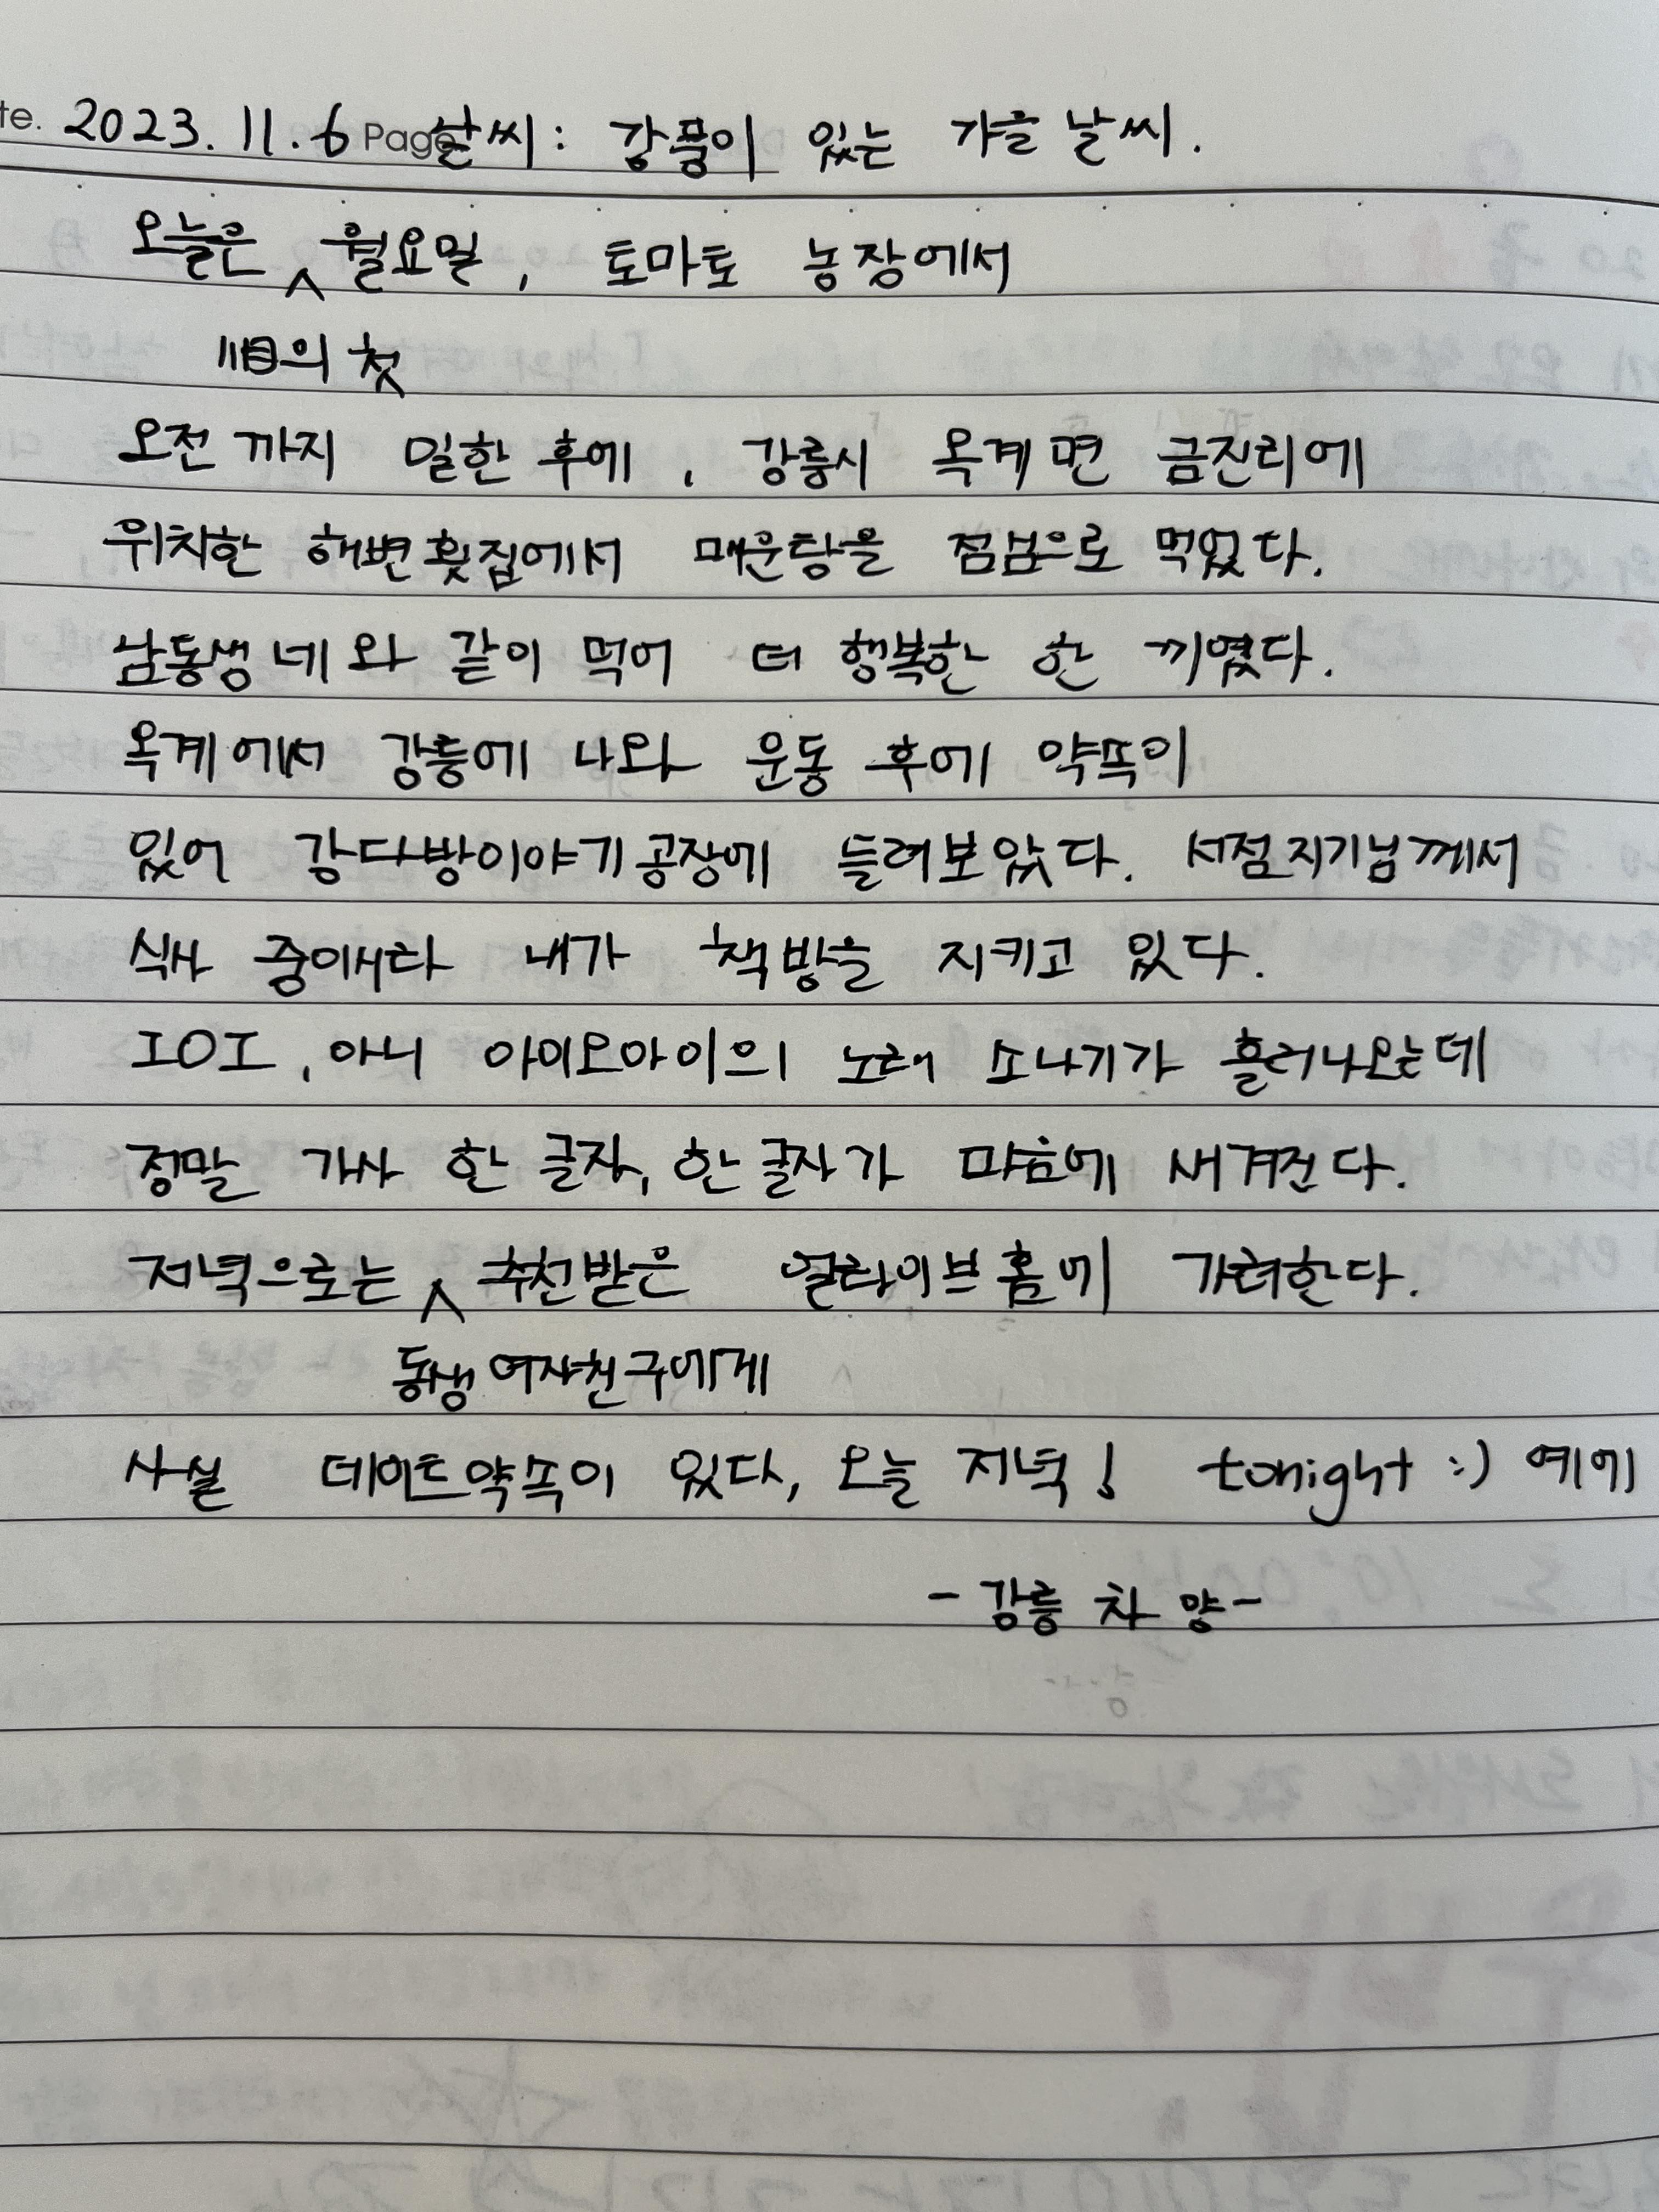 te. 2023. 11. 6 Page 날씨: 강풍이 있는 가을 날씨.
오늘은 ^ 월요일, 토마토 농장에서
11月의 첫
오전까지 일한 후에, 강릉시 옥계면 금진리에
위치한 해변횟집에서 매운탕을 점심으로 먹었다.
남동생네와 같이 먹어 더 행복한 한 끼였다.
옥계에서 강릉에 나와 운동 후에 약속이
있어 강다방이야기공장에 들려보았다. 서점지기님께서
식사 중이시라 내가 책방을 지키고 있다.
IOI, 아니 아이오아이의 노래 소나기가 흘러나오는데
정말 가사 한 글자, 한 글자가 마음에 새겨진다.
저녁으로는 ^ 추천받은 얼라이브홈에 가려한다.
동생여자친구에게
사실 데이트약속이 있다, 오늘 저녁! tonight :) 예에
- 강릉 차 양 -